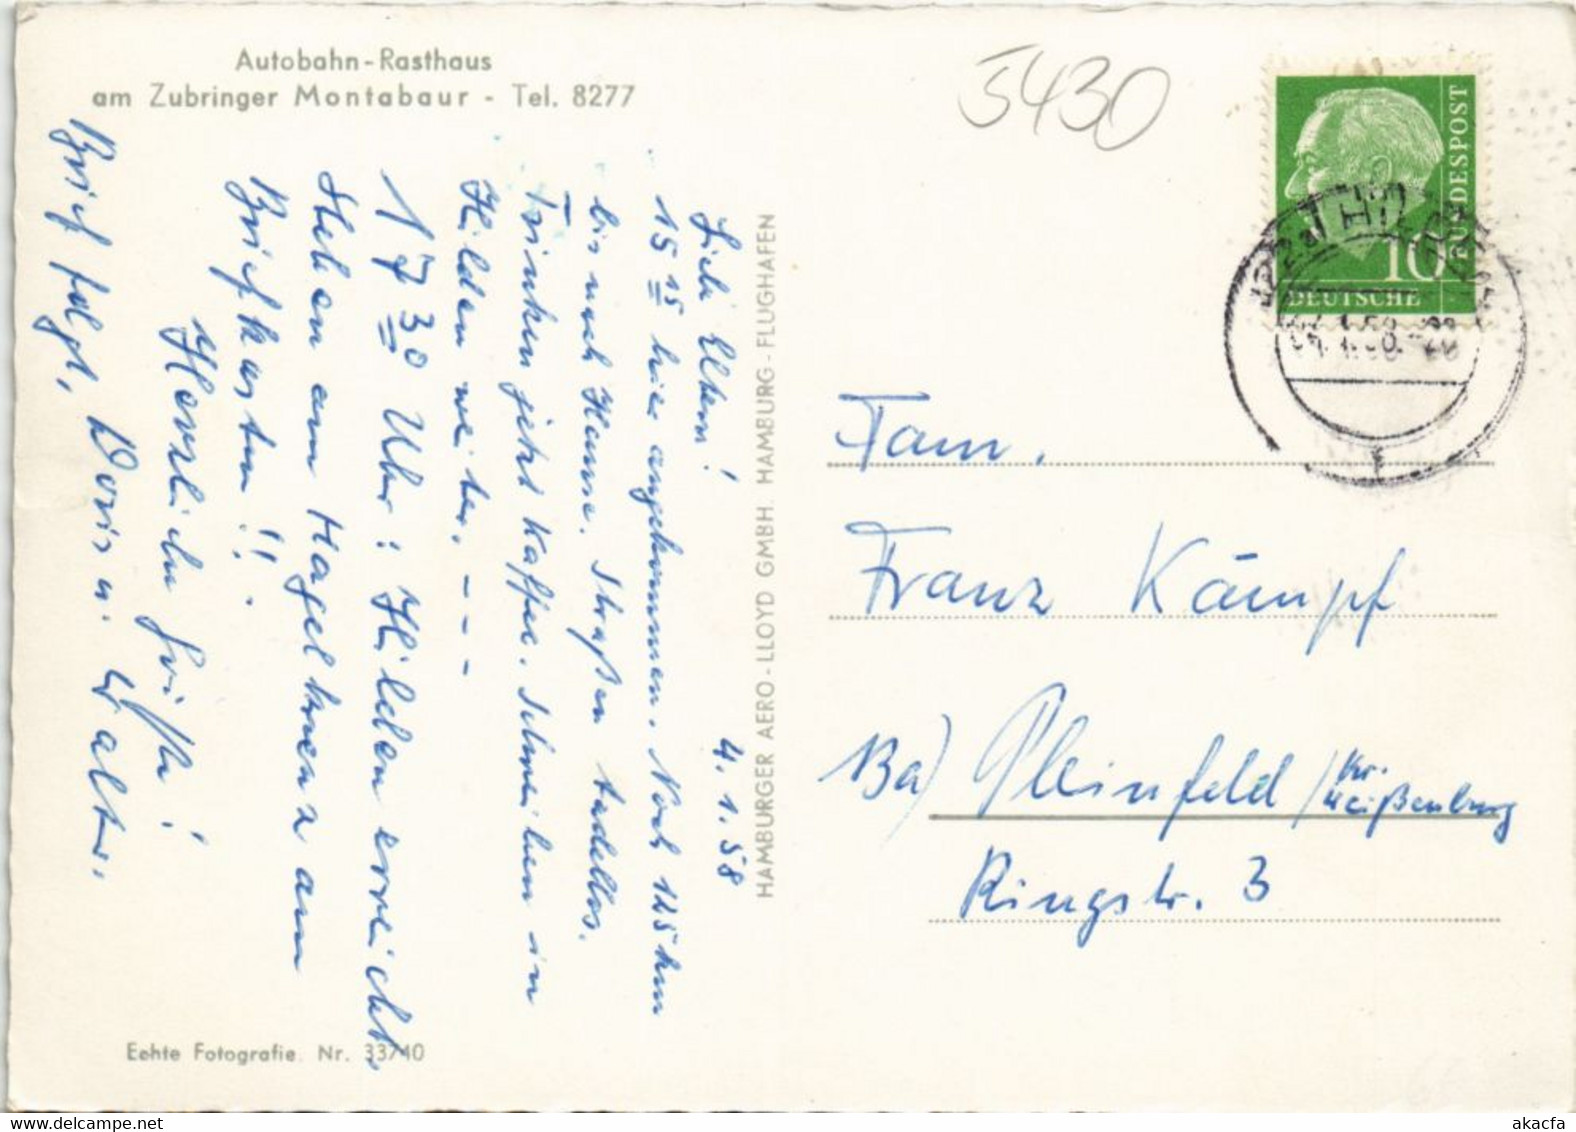 Autobahn-Rasthaus
am Zubringer Montabaur - Tel. 8277
5430
4. 1. 58
Liebe Eltern!
15 15 hier angekommen. Noch 125 km
bis nach Hause. Straßen tadellos.
Trinken jetzt Kaffee. Schneiben in
Hilden weiter. - - -
17 30 Uhr: Hilden erreicht.
Stehen am Hagelkreuz am
Briefkasten!!
Herzliche Grüße!
Brief folgt, Doris u. Walter.
Echte Fotografie Nr. 33740
HAMBURGER AERO-LLOYD GMBH. HAMBURG-FLUGHAFEN
DEUTSCHE
BUNDESPOST
10
Fam.
Franz Kämpf
13a) Pleinfeld / Kr. Weißenburg
Ringstr. 3
akpool.com
akacfa